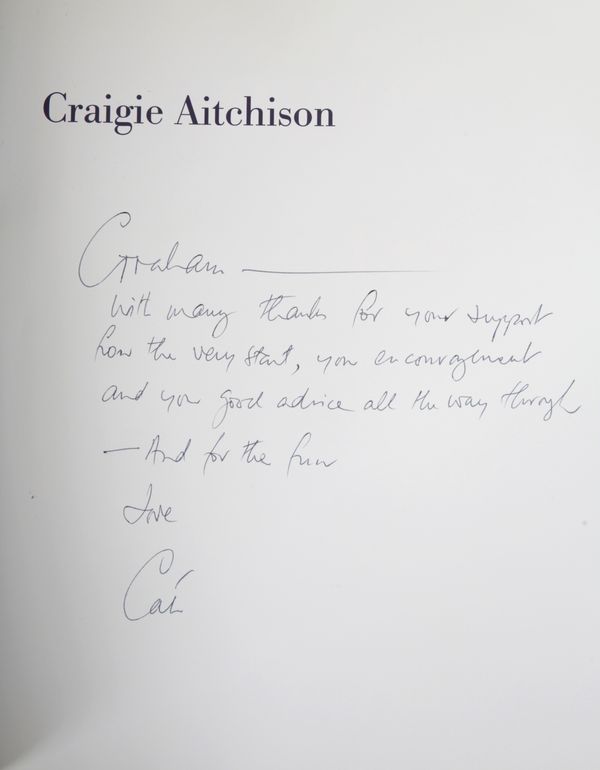 Craigie Aitchison
Graham —
With many thanks for your support
from the very start, your encouragement
and your good advice all the way through
— And for the fun
Love